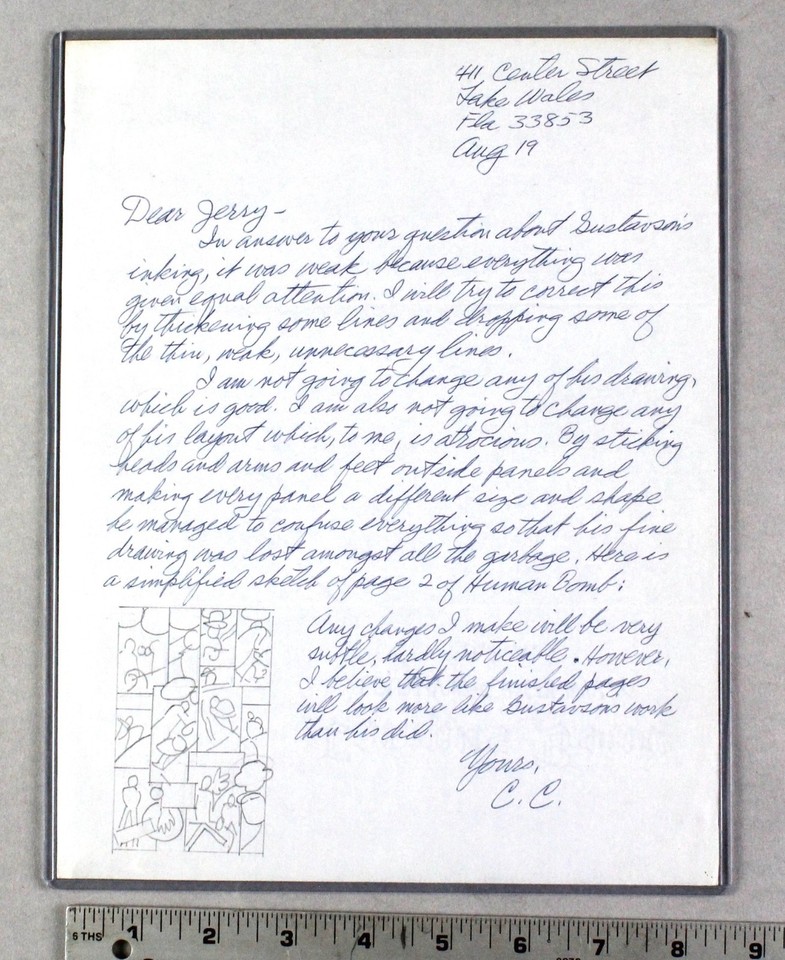 411 Center Street
Lake Wales
Fla 33853
Aug 19
Dear Jerry-
In answer to your question about Gustavson's
inking, it was weak because everything was
given equal attention. I will try to correct this
by thickening some lines and dropping some of
the thin, weak, unnecessary lines.
I am not going to change any of his drawing,
which is good. I am also not going to change any
of his layout which, to me, is atrocious. By sticking
heads and arms and feet outside panels and
making every panel a different size and shape
he managed to confuse everything so that his fine
drawing was lost amongst all the garbage. Here is
a simplified sketch of page 2 of Human Bomb:
Any changes I make will be very
subtle, hardly noticeable. However,
I believe that the finished pages
will look more like Gustavsons work
than his did.
Yours,
C.C.
6 THS 1 2 3 4 5 6 7 8 9